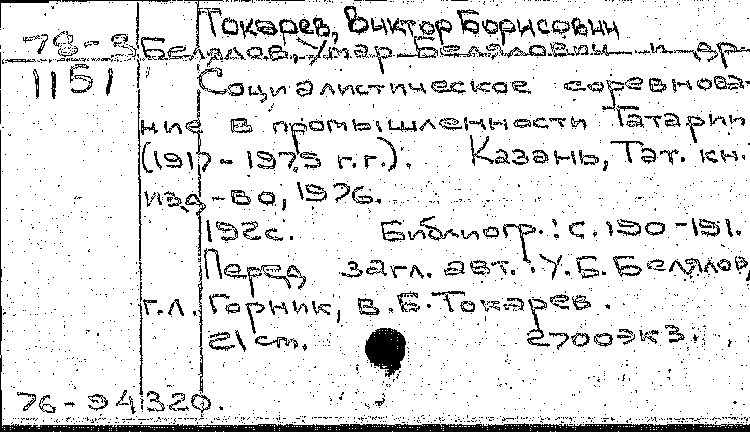 Токарев, Виктор Борисович
78-3 Белялов, Умар Белялович и др.
1151 Социалистическое соревнова-
ние в промышленности Татарии
(1917-1975 г.г.). Казань, Тат. кн.
изд-во, 1976.
192с. Библиогр.: с.190-191.
Перед загл. авт.: У.Б.Белялов,
г.Л. Горник, В.Б.Токарев.
21 ст. 2700экз.
76-94320.